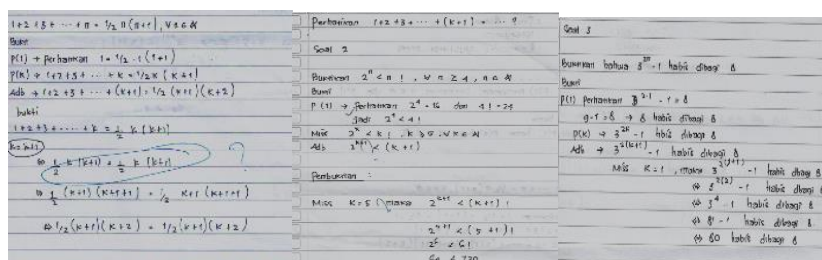 1+2+3+ ... + n = 1/2 n (n+1), ∀ n ∈ N
Bukti
P(1) → perhatikan 1 = 1/2 · 1 (1+1)
P(k) → 1+2+3+ ... + k = 1/2 k (k+1)
Adb → 1+2+3+ ... + (k+1) = 1/2 (k+1) (k+2)
bukti
1+2+3+ ... + k = 1/2 k (k+1)
⇔ 1/2 k (k+1) = 1/2 k (k+1) ?
⇔ 1/2 (k+1) (k+1+1) = 1/2 k+1 (k+1+1)
⇔ 1/2 (k+1) (k+2) = 1/2 (k+1) (k+2)
Perhatikan 1+2+3+ ... + (k+1) = ... ?
Soal 2
Buktikan 2^n < n!, ∀ n ≥ 4, n ∈ N
Bukti
P(1) → perhatikan 2^4 = 16 dan 4! = 24
Jadi 2^4 < 4!
Mis 2^k < k!, k ≥ 5, ∀ k ∈ N
Adb 2^k+1 < (k+1)
Pembuktian :
Miss k = 5 maka 2^k+1 < (k+1)!
2^5+1 < (5+1)!
2^6 < 6!
64 < 720
Soal 3
Buktikan bahwa 3^2n - 1 habis dibagi 8
Bukti
P(1) perhatikan 3^2·1 - 1 = 8
9-1 = 8 → 8 habis dibagi 8
P(k) → 3^2k - 1 hbis dibagi 8
Adb → 3^2(k+1) - 1 habis dibagi 8
Miss k = 1, maka 3^2(1+1) - 1 habis dbagi 8
⇔ 3^2(2) - 1 habis dibagi 8
⇔ 3^4 - 1 habis dibagi 8
⇔ 81 - 1 habis dibagi 8
⇔ 80 habis dibagi 8